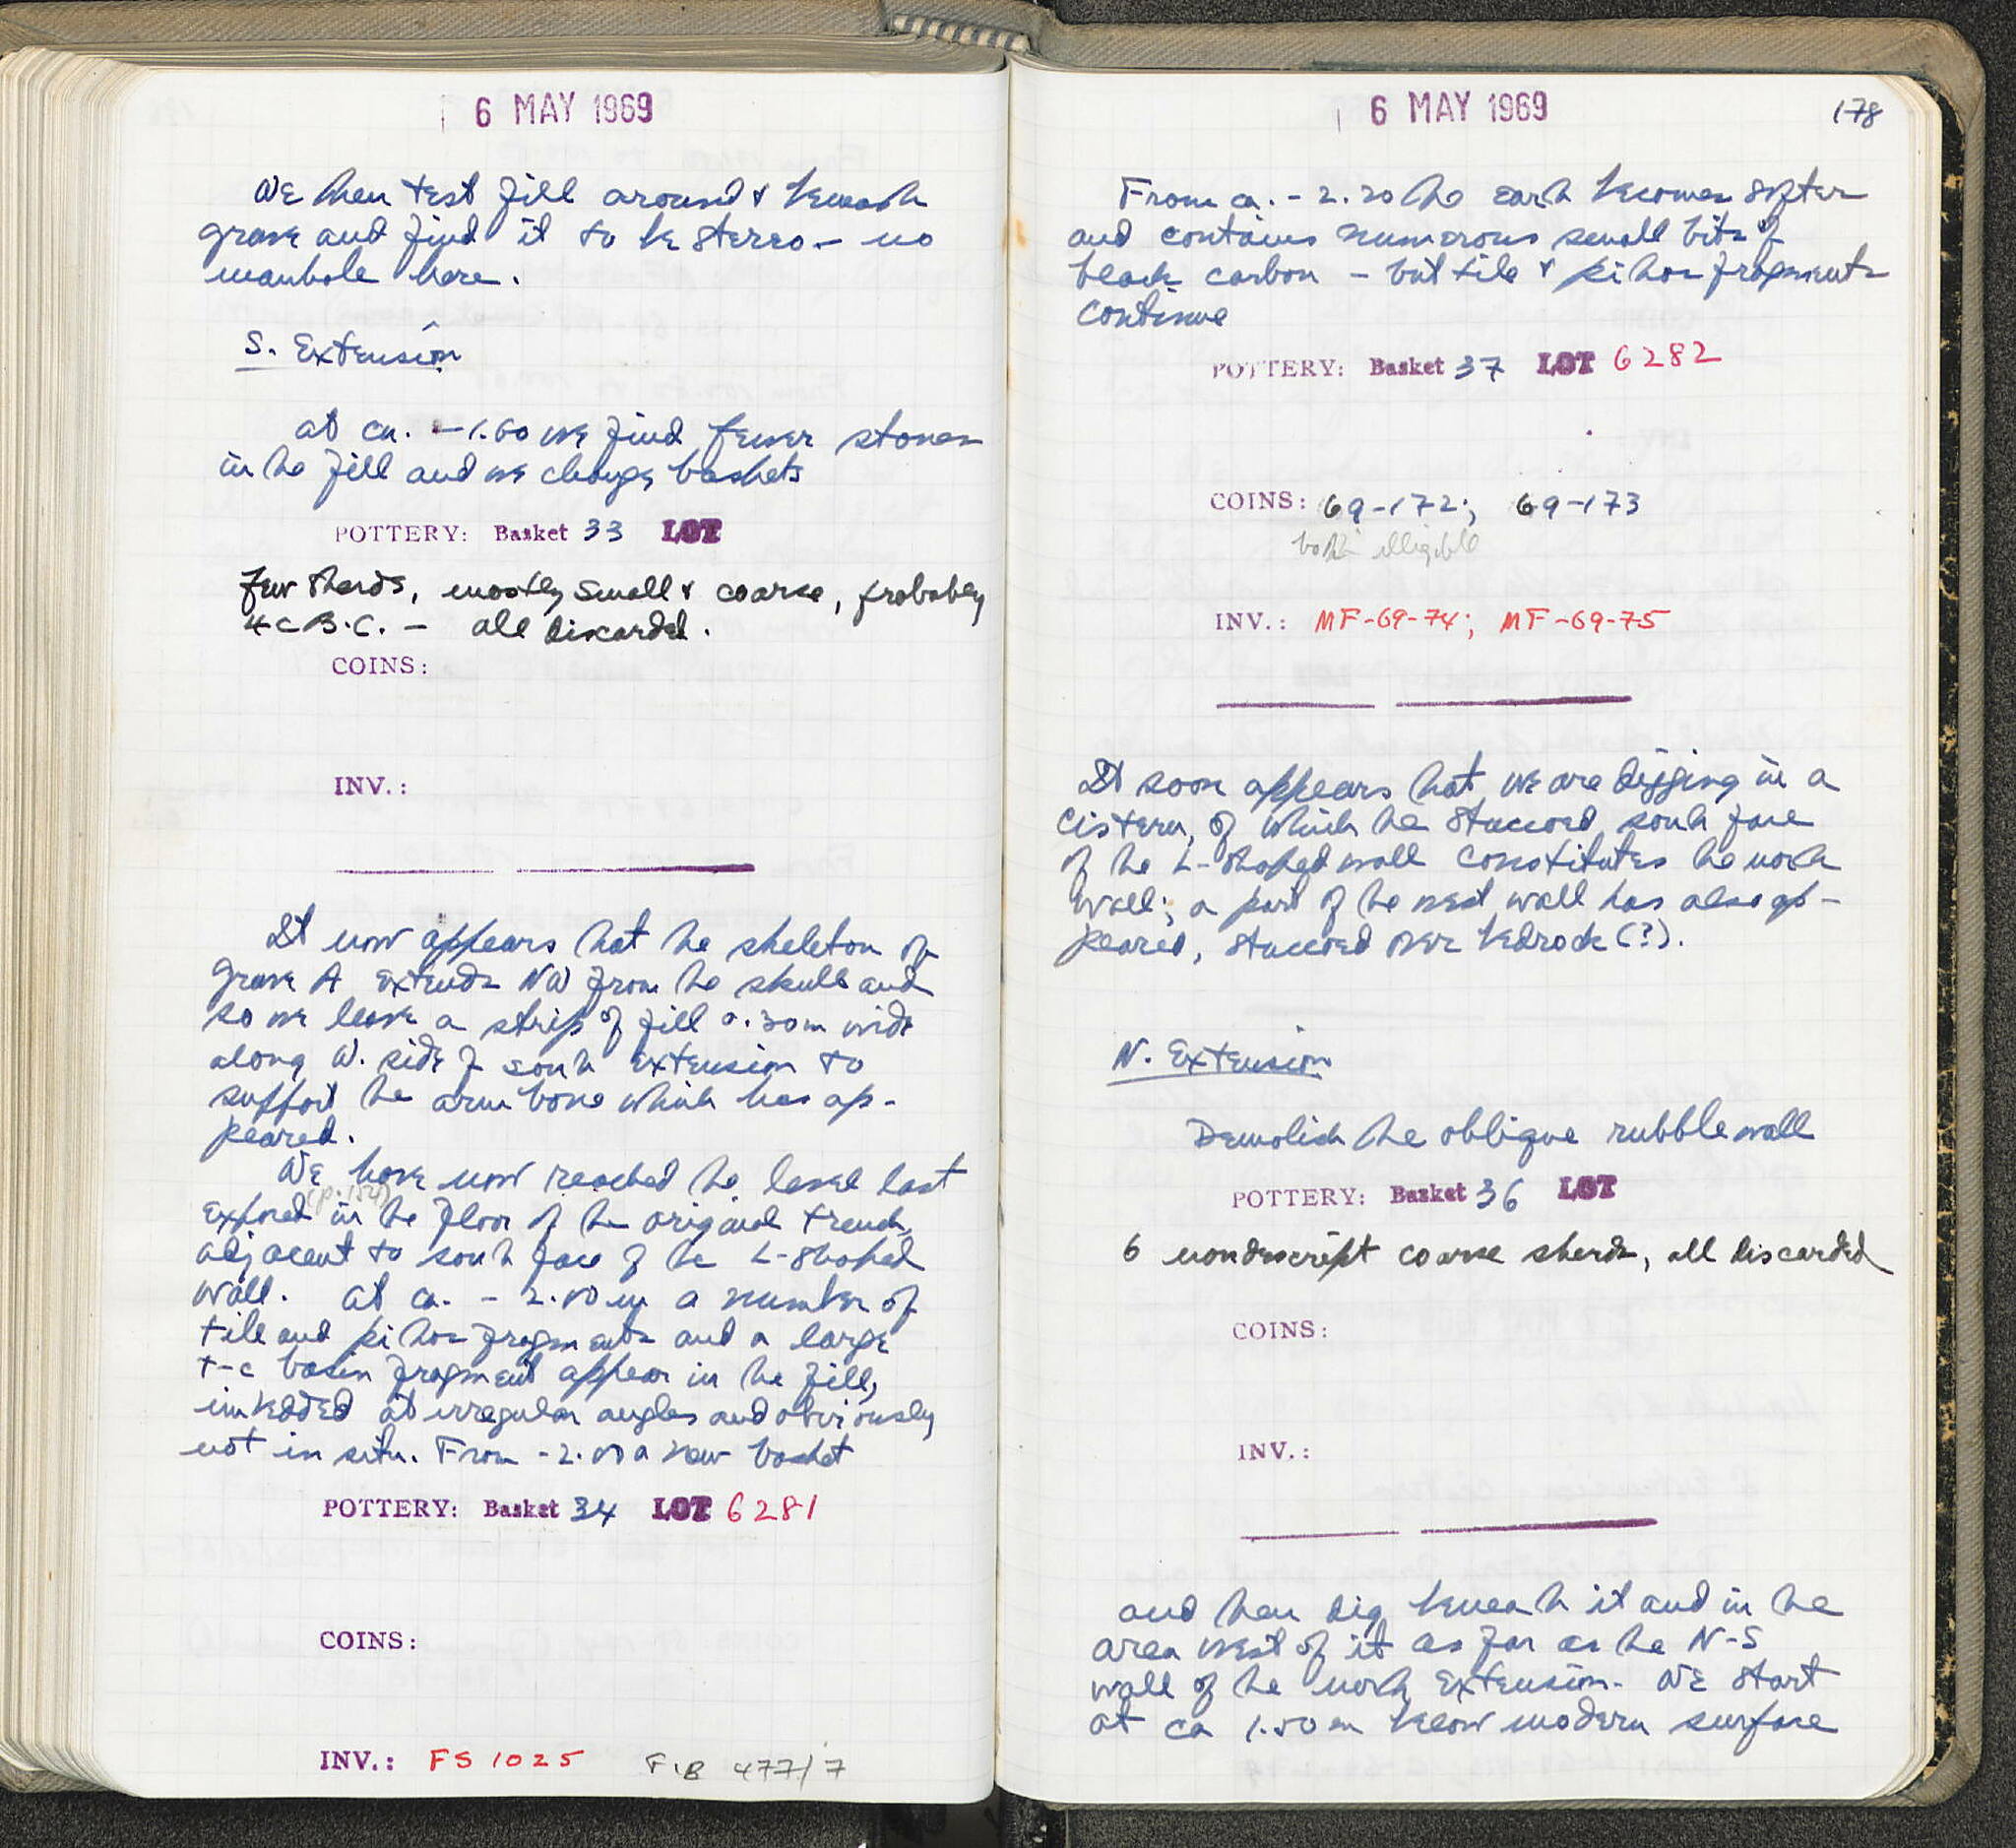 6 MAY 1969
We then test fill around & beneath
grave and find it to be stereo – no
manhole here.
S. Extension
At ca. -1.60 we find fewer stones
in the fill and we change baskets
POTTERY: Basket 33 LOT
Few sherds, mostly small & coarse, probably
4 c B.C. – all discarded.
COINS:
INV.:
It now appears that the skeleton of
grave A extends NW from the skull and
so we leave a strip of fill 0.30m wide
along W. side of south extension to
support the arm bone which has ap-
peared.
We have now reached the level last
(p. 154)
exposed in the floor of the original trench,
adjacent to south face of the L-shaped
wall. At ca. - 2.00 m a number of
tile and pithos fragments and a large
t-c basin fragment appear in the fill,
imbedded at irregular angles and obviously
not in situ. From -2.00 a new basket
POTTERY: Basket 34 LOT 6281
COINS:
INV.: FS 1025 F.B 477/7
6 MAY 1969
178
From ca. - 2.20 the earth becomes softer
and contains numerous small bits of
black carbon – but tile & pithos fragments
continue
POTTERY: Basket 37 LOT 6282
COINS: 69-172; 69-173
both illigible
INV.: MF-69-74; MF-69-75
It soon appears that we are digging in a
cistern, of which the stuccoed south face
of the L-shaped wall constitutes the north
wall; a part of the west wall has also ap-
peared, stuccoed over bedrock (?).
N. Extension
Demolish the oblique rubble wall
POTTERY: Basket 36 LOT
6 nondescript coarse sherds, all discarded
COINS:
INV.:
and then dig beneath it and in the
area west of it as far as the N-S
wall of the north extension. We start
at ca 1.50 m below modern surface